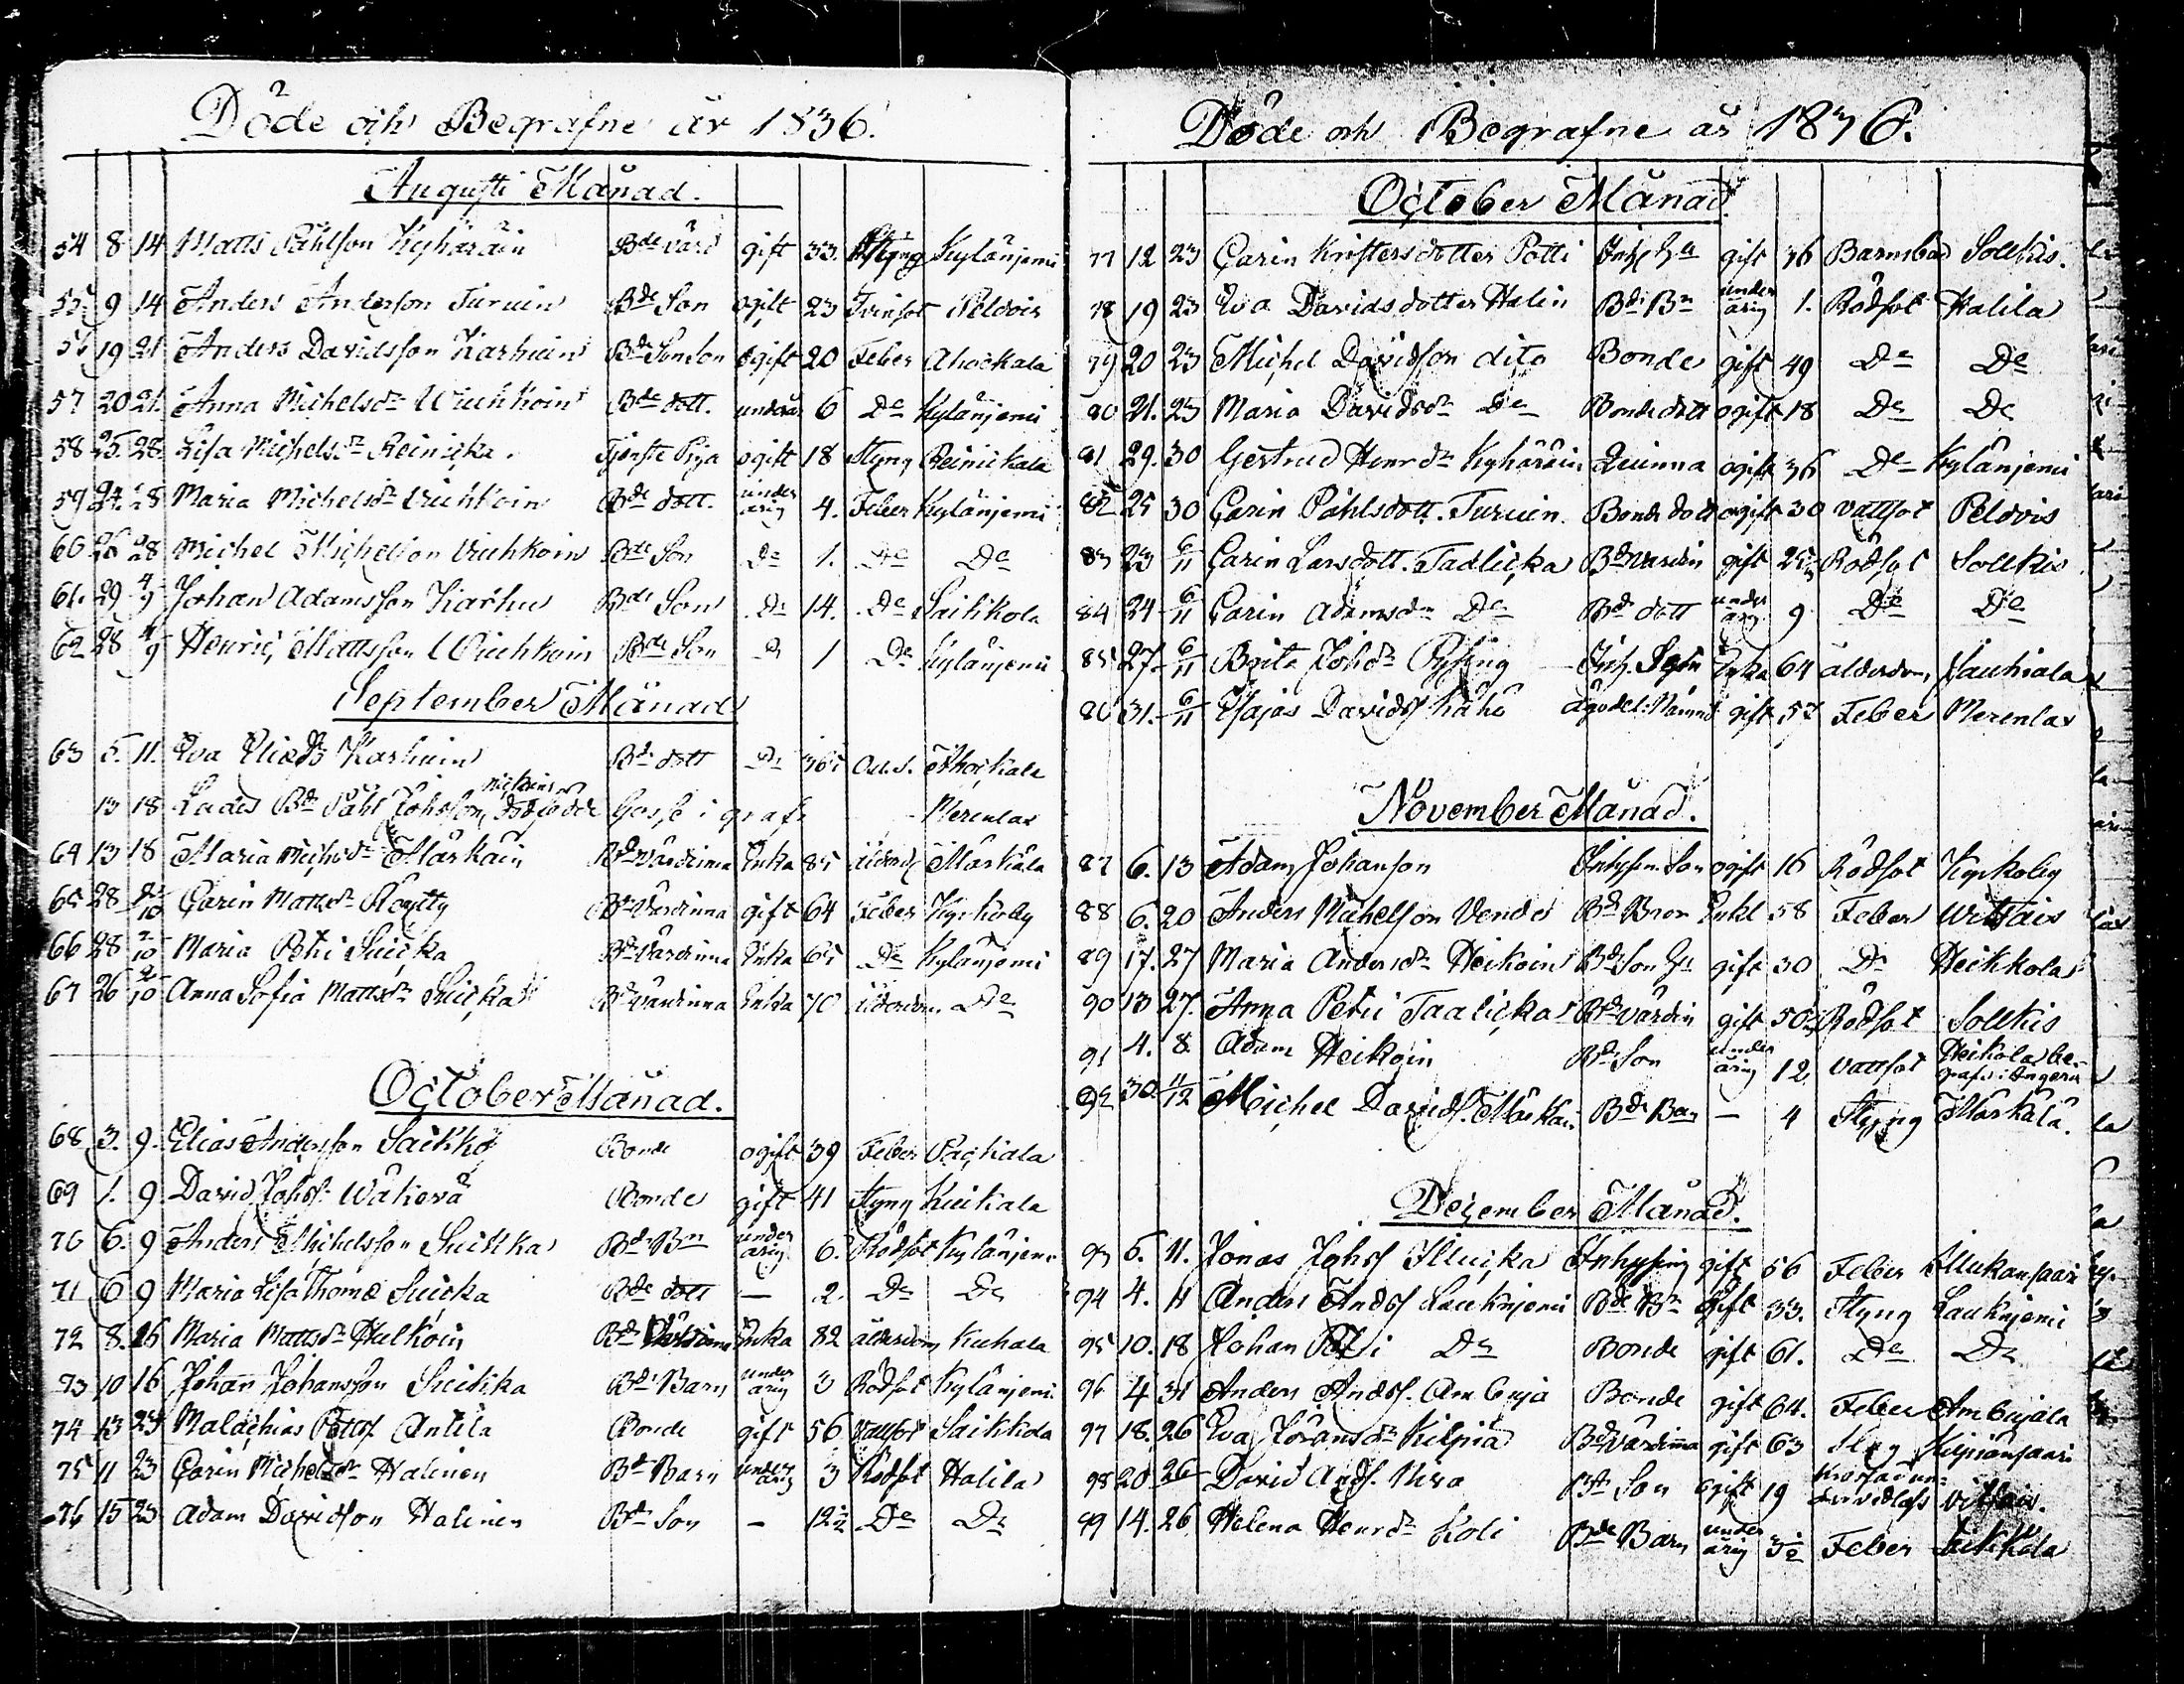 Döde och Begrafne år 1836.
Augusti Månad.
54 8 14 Matts Påhlson Kyhäräin Bde värd gift 33. Styng Kylänjemi
55 9 14 Anders Andersson Turuin Bde Son ogift 23 Tvinsot Peldois
56 19 21 Anders Davidsson Karhuin Bde Sonson ogift 20 Feber Ahockala
57 20 21. Anna Michelsdr Wiuhkoin Bde dott. underår 6 De Kylänjemi
58 25. 28. Lisa Michelsdr Reinicka. Tjenste Piga ogift 18 Styng Reinickala
59 24. 28 Maria Michelsdr Viuhkoin Bde dott. under årig 4. Feber Kylänjemi
60 26 28 Michel Michelson Viuhkoin Bde Son De 1. De De
61. 29 4/9 Johan Adamsson Karhu Bde Son De 14. De Saikkola
62 28 4/9 Henric Mattsson Wiuhkoin Bde Son De 1 De Kylänjemi
September Månad
63 5. 11. Eva Eliædr Karhuin Bde dott De Ahockala
13 18 Lades Bde Påhl Johsson, dödfödde Gosse i graf. Merenlax
64 13 18 Maria Michsdr Märkäin Bde Värdinna Enka 85 Ålderd. Märkälä
65 28 2/10 Carin Mattsdr Röytty Bde Värdinna gift 64 Feber Kyrkoby
66 28 2/10 Maria Petri Suicka Bde Värdinna Enka 65 De Kylänjemi
67 26 2/10 Anna Sofia Mattsdr Suicka Bde Värdinna Enka 70 Ålderdom. De
October Månad.
68 3. 9. Elias Andersson Saikko Bonde ogift 39 Feber Packala
69 1. 9. David Johss. Wäkevä Bonde gift 41 Styng Kuikala
70 6. 9 Anders Michelsson Suikka Bde Bn under årig 6. Rödsot Kylänjemi
71 6 9 Maria Lisa Thomæ Suicka Bde dott — 2. De De
72 8. 16 Maria Mattsdr Hulkoin Bde Värdinna Enka 82 ålderdom Kukala
73 10 16 Johan Johansson Suikka Bde Barn under årig 3 Rödsot Kylänjemi
74 13 23 Malachias Pettss. Antila Bonde gift 56 Vattsot Saikkola
75 11 23 Carin Michelsdr Halinen Bde Barn under årig 3 Rödsot Halila
76 15 23 Adam Davidson Halinen Bde Son — 12½ De De
Döde och Begrafne år 1836.
October Månad.
77 12 23 Carin Kristersdotter Potti Inh. gift 36 Barnsbörd Sollkis.
78 19 23 Eva Davidsdotter Halin Bde Bn under årig 1. Rödsot Halila
79 20 23 Michel Davidsson dito Bonde gift 49 De De
80 21. 23 Maria Davidsdr De Bonde dott ogift 18 De De
81 29. 30 Gertrud Henrdr Kyhäräin Quinna ogift 36 De Kylänjemi
82 25 30 Carin Påhlsdott. Turuin. Bonde dott ogift 30 Vattsot Peldois
83 23 6/11 Carin Larsdott. Tadlicka Bde Värdin gift 25 Rödsot Sollkis
84 24 6/11 Carin Adamsdr De Bde dott under årig 9 De De
85 27. 6/11 Brita Johsdr Pysing Inh. Enka 64 ålderdom, Haukiala
86 31. 6/11 Esajas Davidss. Kähö gift 57 Feber Merenlax
November Månad.
87 6. 13 Adam Johanson Inhysn. Son ogift 16 Rödsot Kyrkoby
88 6. 20 Anders Michelson Vende Bde Bror Enkl 58 Feber Witsais
89 17. 27 Maria Andersdr Heikoin Bde Son Hu gift 30 De Heikkola
90 13 27. Anna Petri Taalicka Bde Värdin gift 50 Rödsot Sollkis
91 4. 8. Adam Heikoin Bde Son under årig 12, Vattsot Heikola be-
grafv: i Angerin
92 30. 11/12 Michel Davidss. Märkäi Bde Barn — 4 Styng Märkälä.
Dezember Månad.
93 6. 11. Jonas Johss Illucka Inhysing gift 56 Feber Illukansaari
94 4. 11 Anders Anderss Laukniemi Bde Bn Gift 33. Styng Laukniemi
95 10. 18 Johan Petri De Bonde gift 61. De De
96 4 31 Anders Anderss. Ambuja Bonde gift 64. Feber Ambujala
97 18. 26 Eva Jöransdr Kilpiä Bde Värdinna gift 63 Styg Kilpiänsaari
98 20 26 David Ands. Bde Son ogift 19 Krossad un-
Vitsais.
99 14. 26 Helena Henrdr Koli Bde Barn under årig 3½ Feber Saikkola